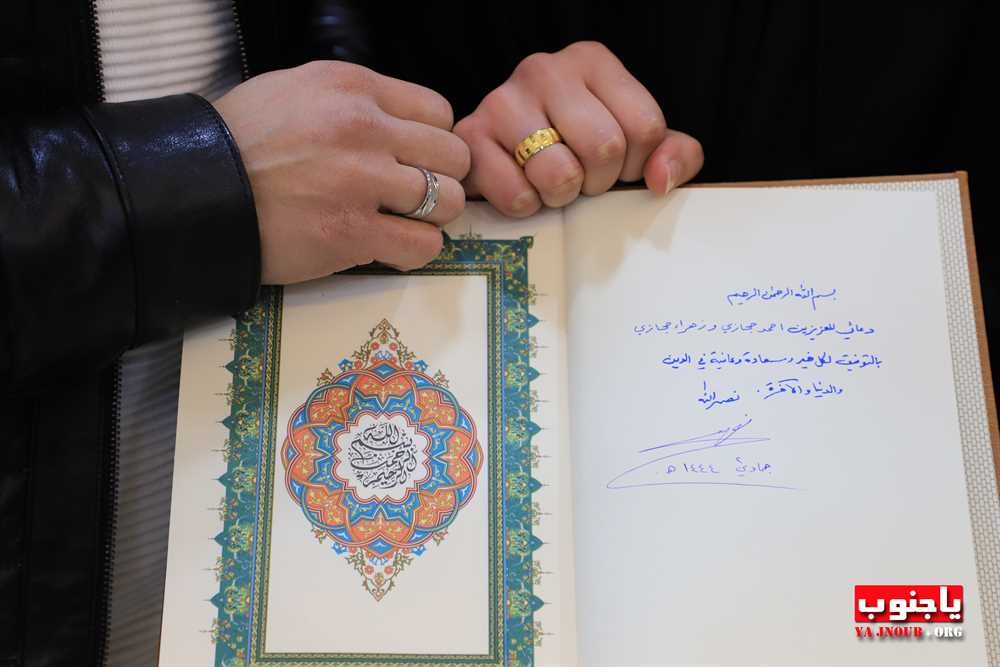 بسم الله الرحمن الرحيم
بسم الله الرحمن الرحيم
دعائي للعزيزين احمد حجازي وزهراء حجازي
بالتوفيق لكل خير وسعادة وعافية في الدين
والدنيا والآخرة.
نصر الله
جمادي ١٤٤٤ هـ
ياجنوب
YA JNOUB . ORG